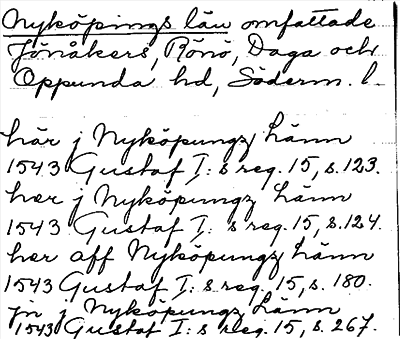 Nyköpings län omfattade
Jönåkers, Rönö, Daga och
Oppunda hd, Söderm. l.
här j Nyköpungz Länn
1543 Gustaf I: s reg. 15, s. 123.
her j Nyköpungz Länn
1543 Gustaf I: s reg. 15, s. 124.
her aff Nyköpungz Länn
1543 Gustaf I: s reg. 15, s. 180.
jn j Nyköpungz Länn
1543 Gustaf I: s reg. 15, s. 267.